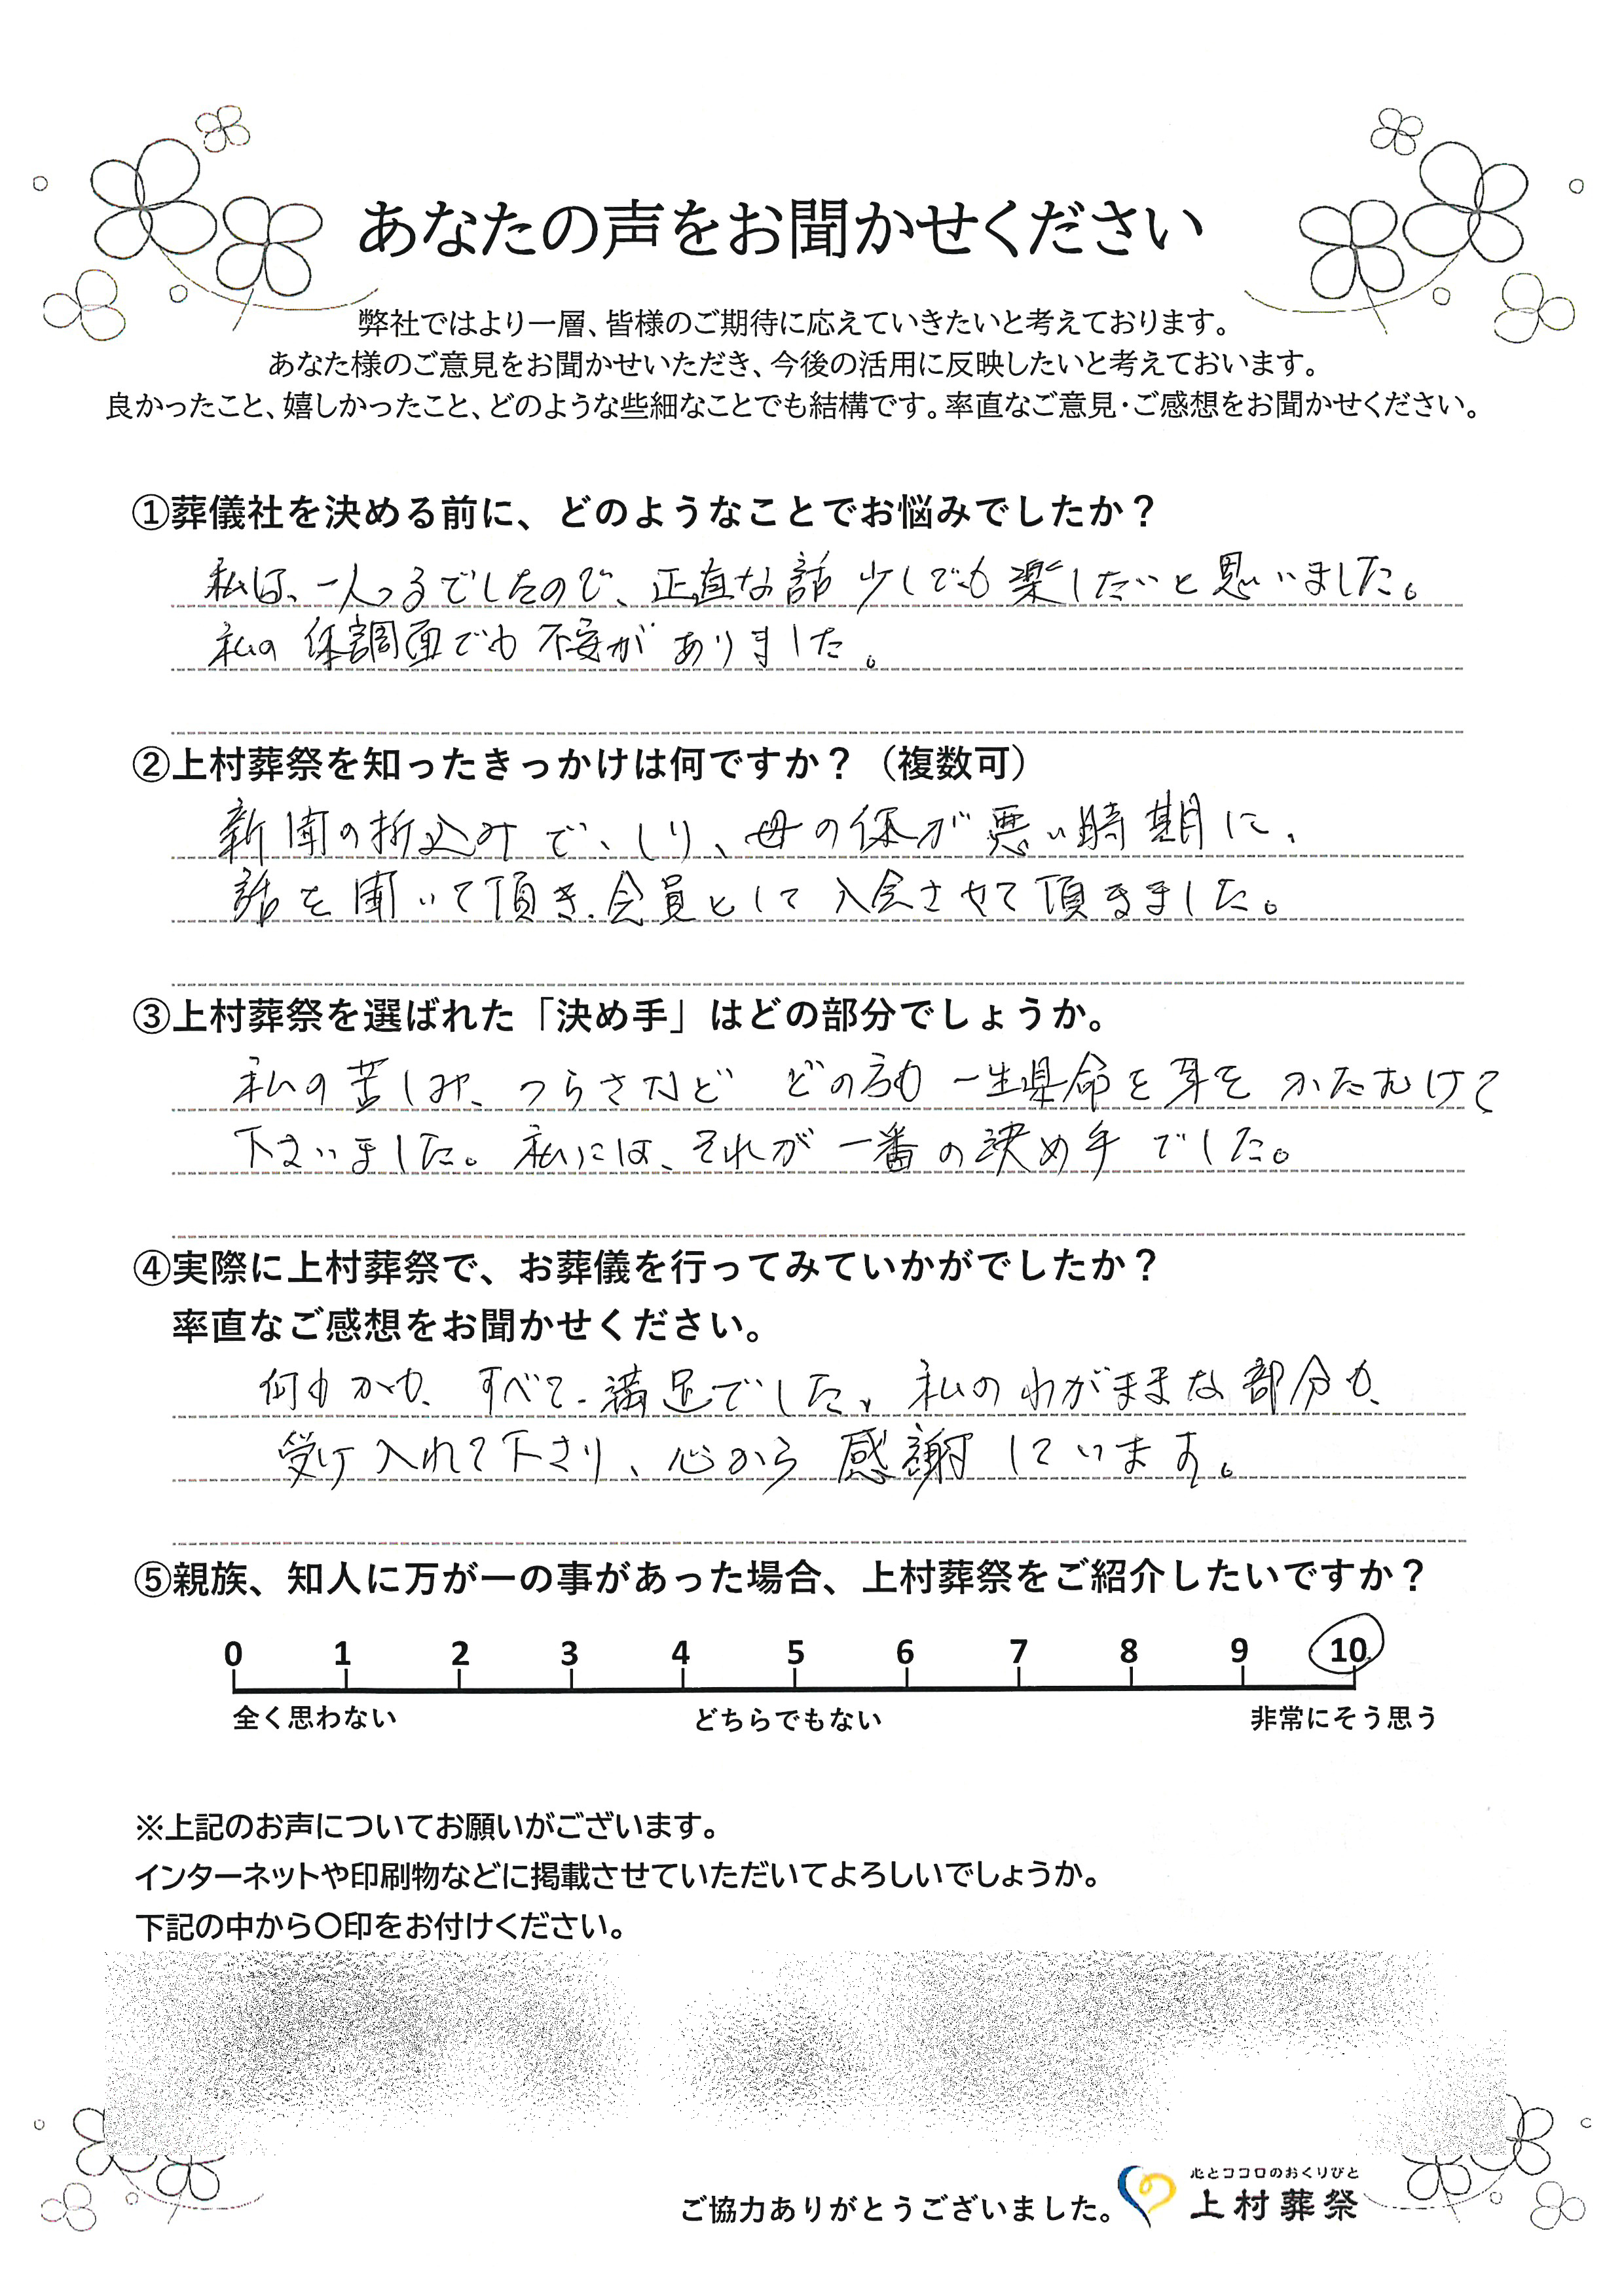 あなたの声をお聞かせください
弊社ではより一層、皆様のご期待に応えていきたいと考えております。
あなた様のご意見をお聞かせいただき、今後の活用に反映したいと考えておいます。
良かったこと、嬉しかったこと、どのような些細なことでも結構です。率直なご意見・ご感想をお聞かせください。
①葬儀社を決める前に、どのようなことでお悩みでしたか？
私は、一人っ子でしたので、正直な話 少しでも楽したいと思いました。
私の体調面でも不安がありました。
②上村葬祭を知ったきっかけは何ですか？（複数可）
新聞の折込みで、しり、母の体が悪い時期に、
話を聞いて頂き、会員として入会させて頂きました。
③上村葬祭を選ばれた「決め手」はどの部分でしょうか。
私の苦しみ、つらさなど どの方も 一生県命を耳を かたむけて
下さいました。私には、それが一番の決め手でした。
④実際に上村葬祭で、お葬儀を行ってみていかがでしたか？
率直なご感想をお聞かせください。
何もかも、すべて、満足でした。私のわがままな部分も、
受け入れて下さり、心から感謝しています。
⑤親族、知人に万が一の事があった場合、上村葬祭をご紹介したいですか？
0 1 2 3 4 5 6 7 8 9 10
全く思わない どちらでもない 非常にそう思う
※上記のお声についてお願いがございます。
インターネットや印刷物などに掲載させていただいてよろしいでしょうか。
下記の中から〇印をお付けください。
ご協力ありがとうございました。
心とココロのおくりびと
上村葬祭